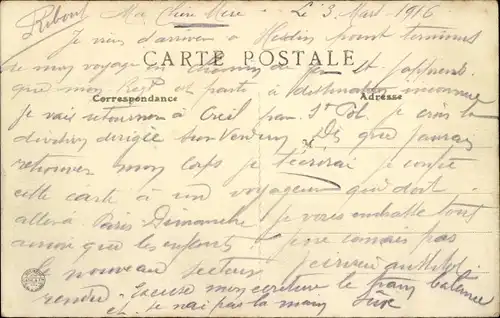 Ribout Ma Chère Mère Le 3 Mars 1916
Je viens d'arriver à Hesdin point terminus
CARTE POSTALE
de mon voyage en chemin de fer et j'apprends
que mon Regt est parti à destination inconnue
Correspondance Adresse
je vais retourner à Creil par St Pol je crois la
division dirigée sur Verdun Dès que j'aurai
retrouvé mon corps je t'écrirai je confie
cette carte à un voyageur qui doit
aller à Paris Dimanche je vous embrasse tous
ainsi que les enfants je ne connais pas
le nouveau secteur j'écrirai aussitôt
rendu Excuse mon écriture le train balance
et je n'ai pas la main sûre